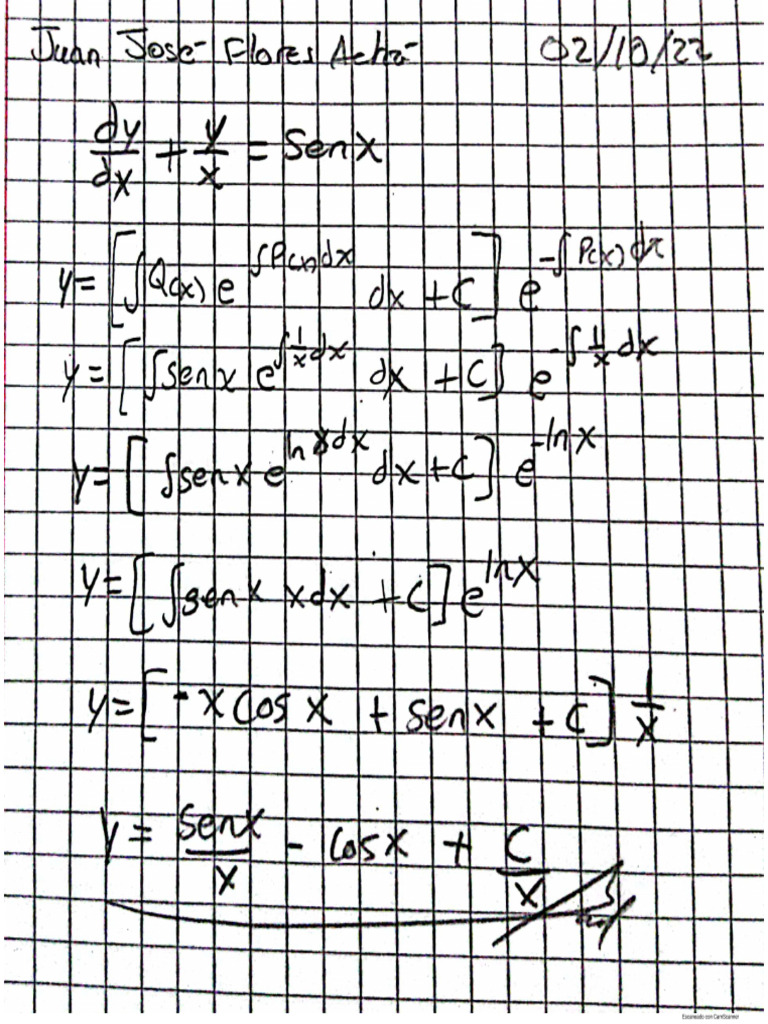 Juan José Flores 02/10/22
dy/dx + y/x = Sen x
y = [∫Q(x) e^∫P(x)dx dx + C] e^-∫P(x)dx
y = [∫sen x e^∫1/x dx dx + C] e^-∫1/x dx
y = [∫sen x e^ln x dx dx + C] e^-ln x
y = [∫sen x x dx + C] e^ln x
y = [-x cos x + sen x + C] 1/x
y = sen x/x - cos x + C/x
Escaneado con CamScanner